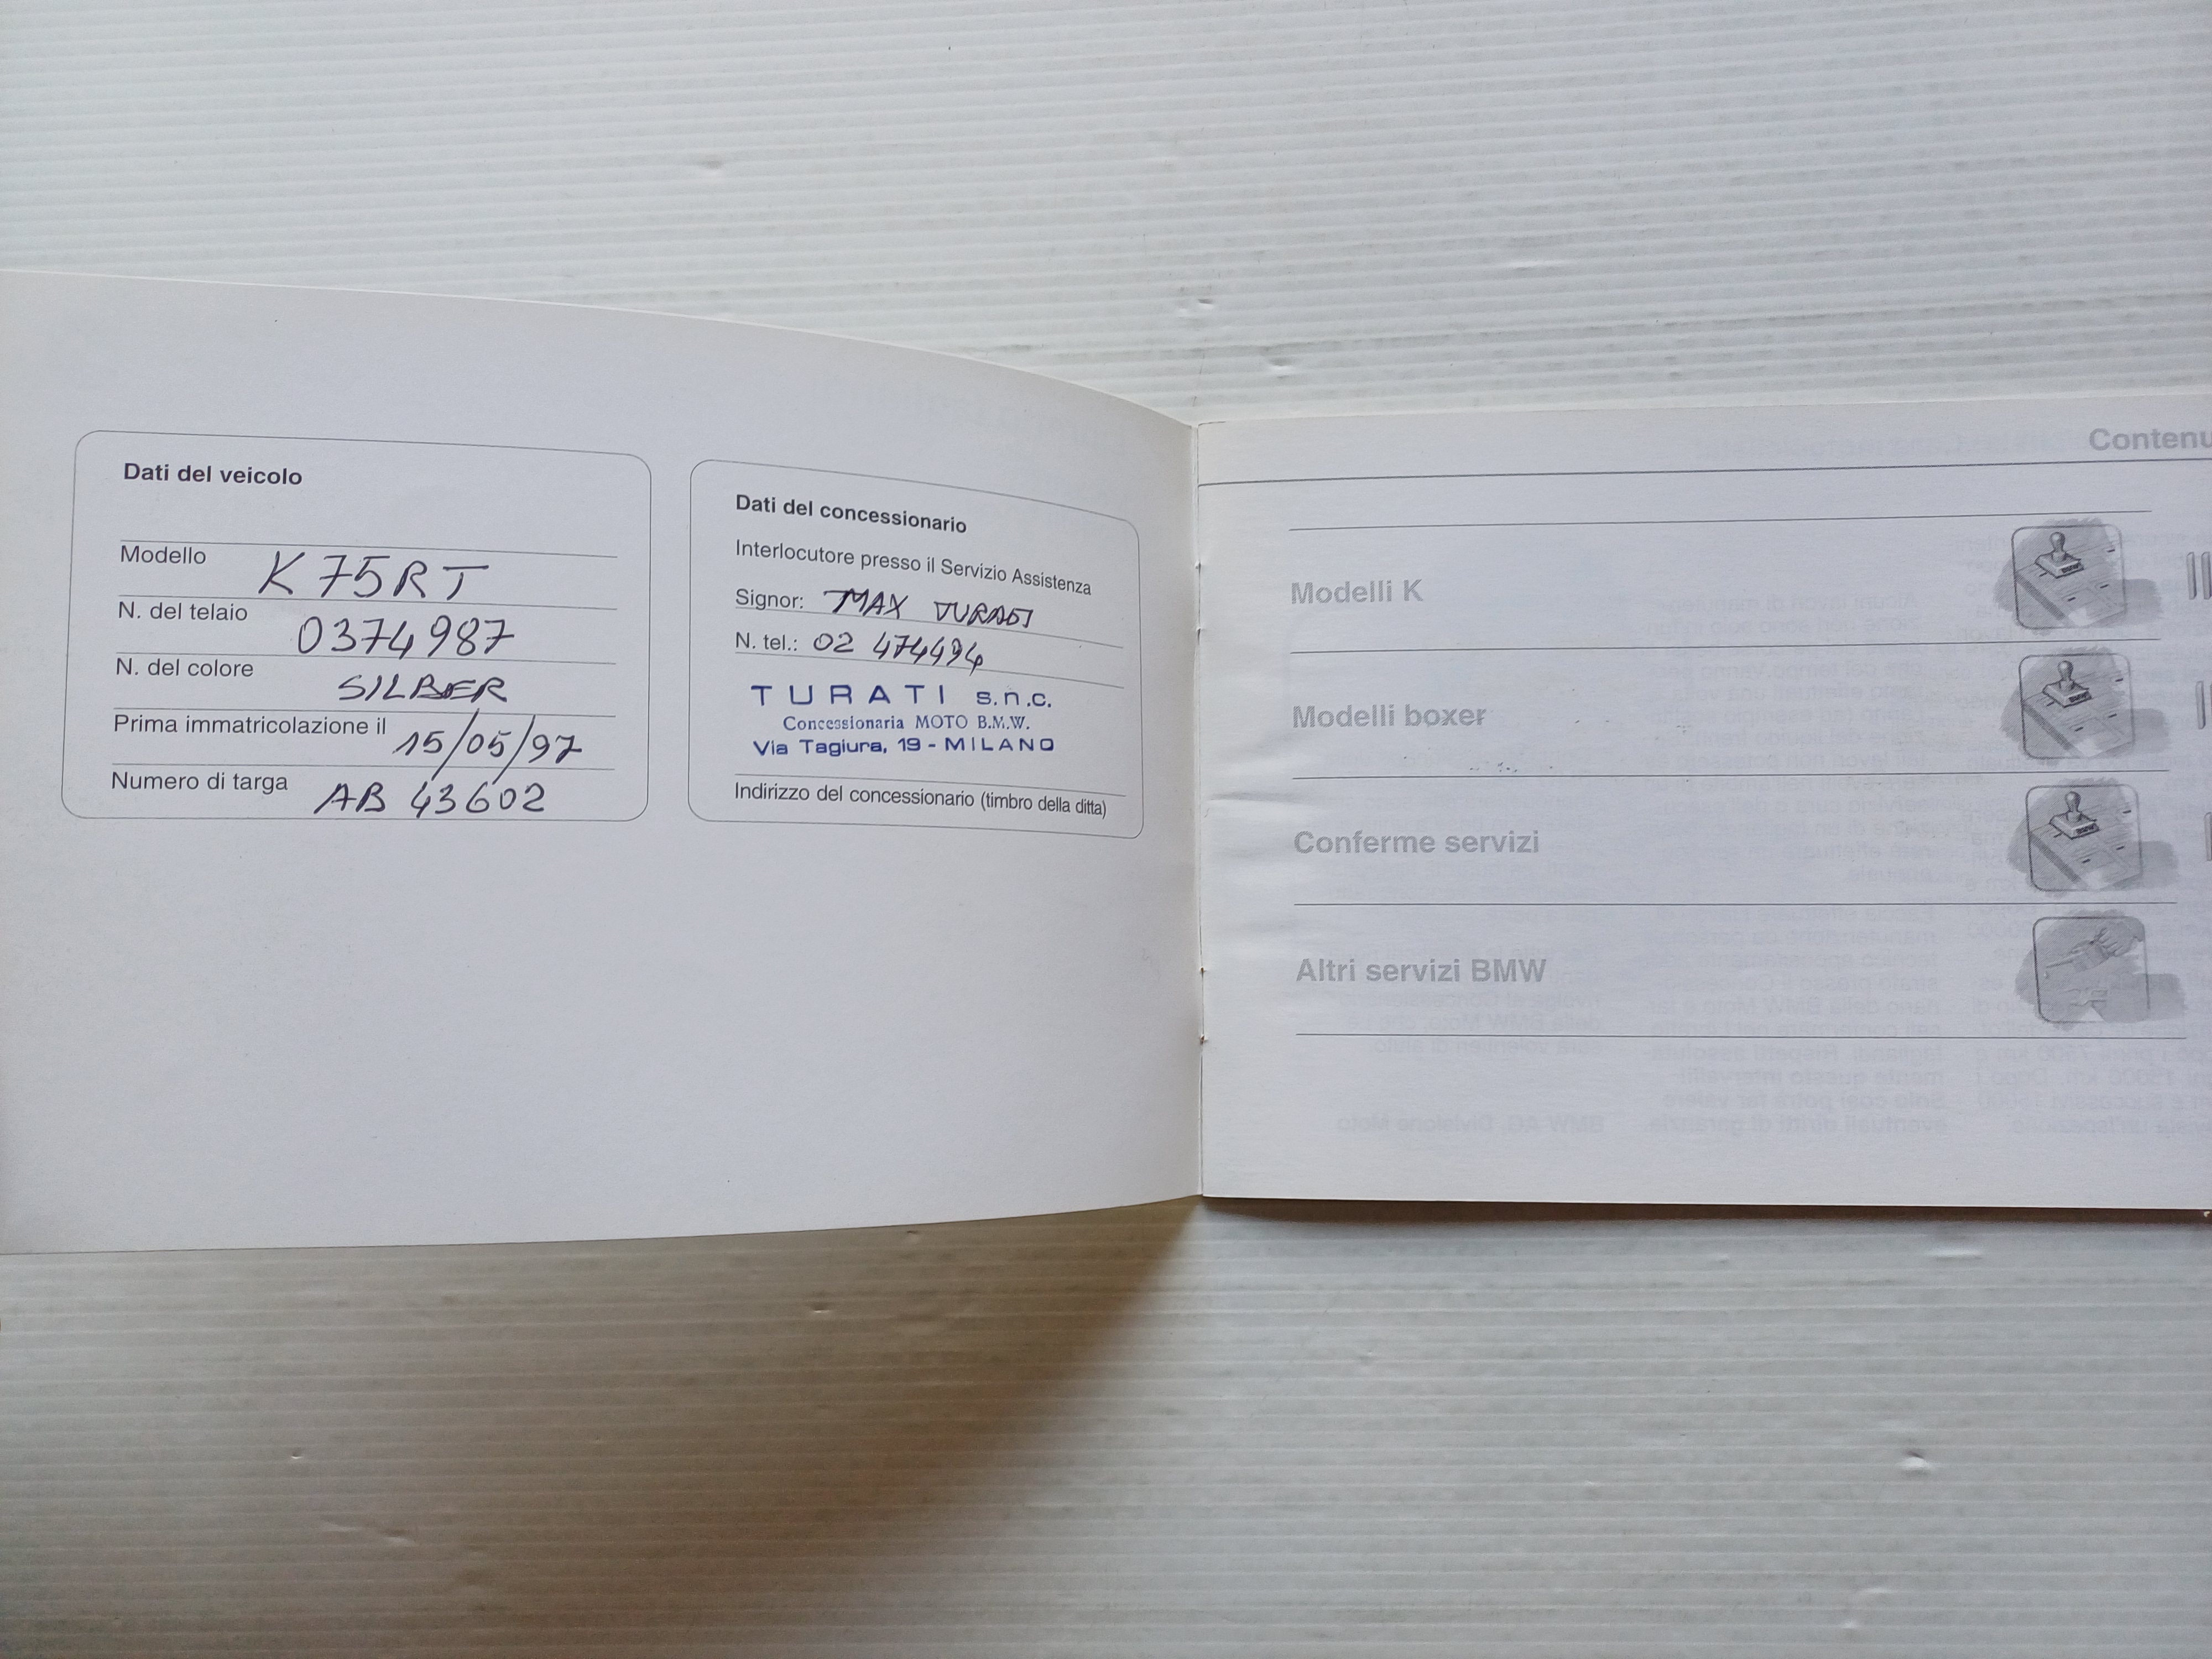 Dati del veicolo
Modello K75RT
N. del telaio 0374987
N. del colore SILBER
Prima immatricolazione il 15/05/97
Numero di targa AB 43602
Dati del concessionario
Interlocutore presso il Servizio Assistenza
Signor: MAX TURATI
N. tel.: 02 474494
TURATI s.n.c.
Concessionaria MOTO B.M.W.
Via Tagiura, 19 - MILANO
Indirizzo del concessionario (timbro della ditta)
Contenu
Modelli K
Modelli boxer
Conferme servizi
Altri servizi BMW